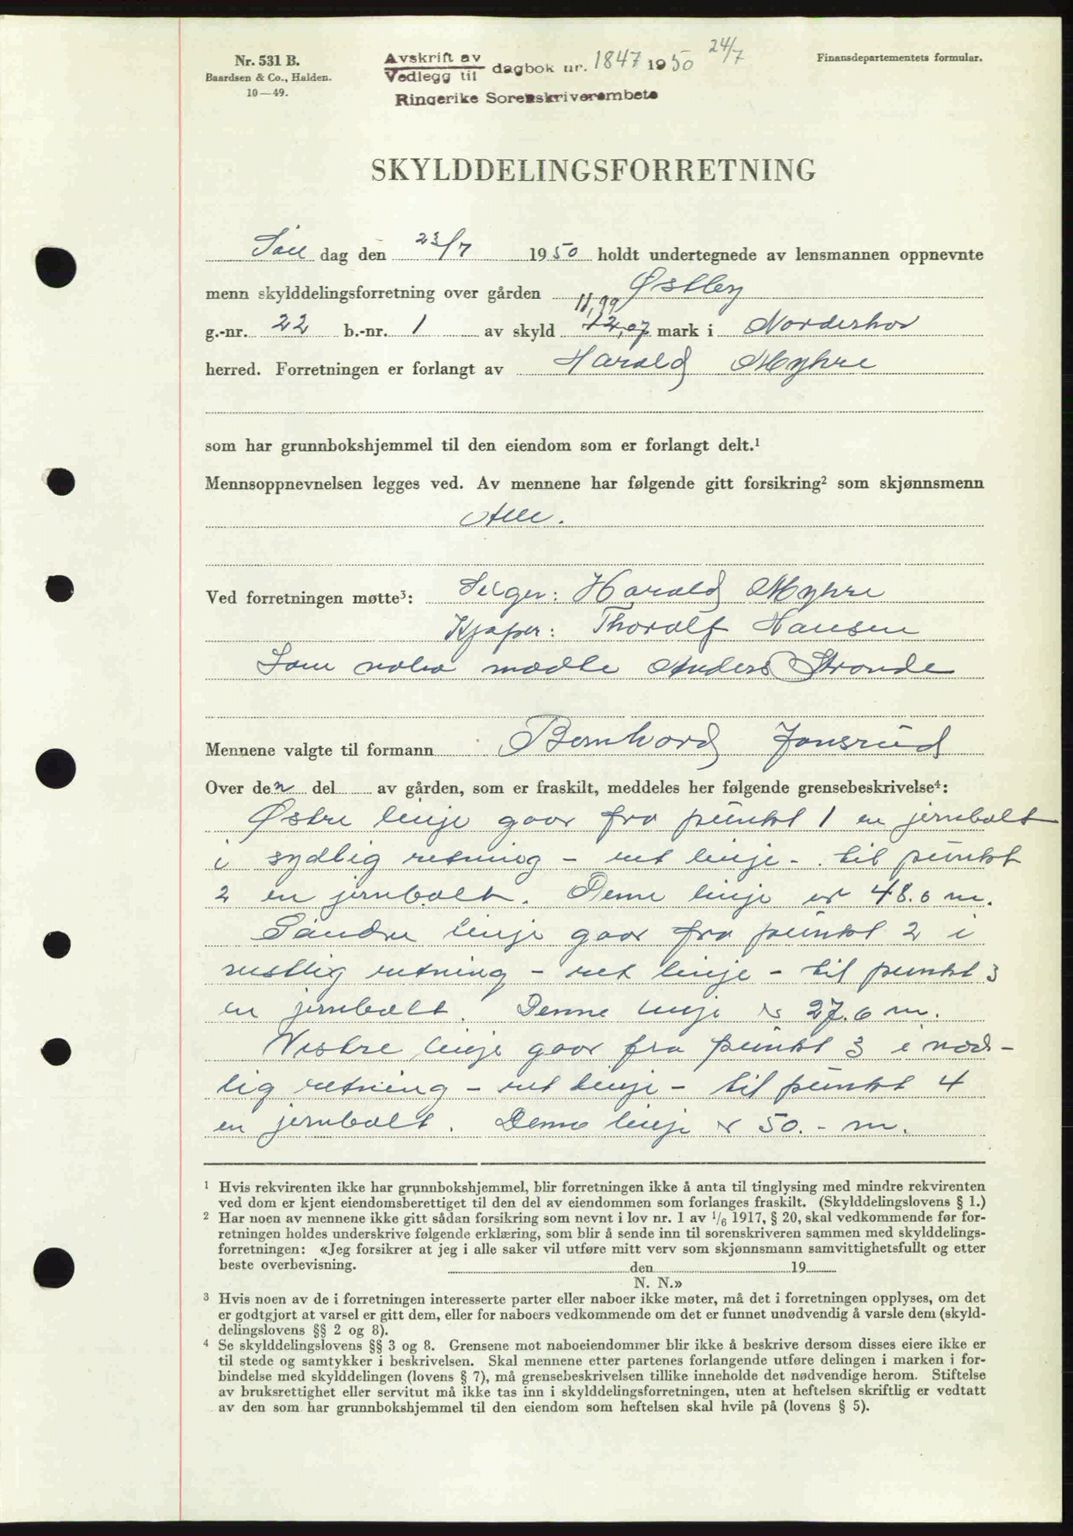 Nr. 531 B.
Baardsen & Co., Halden.
10—49.
Avskrift av
Vedlegg til dagbok nr. 1847 1950 24/7
Ringerike Sorenskriverembete
Finansdepartementets formular.
SKYLDDELINGSFORRETNING
Søn dag den 23/7 1950 holdt undertegnede av lensmannen oppnevnte
menn skylddelingsforretning over gården Østby
11,99
g.-nr. 22 b.-nr. 1 av skyld 12,07 mark i Norderhov
herred. Forretningen er forlangt av Harald Myhre
som har grunnbokshjemmel til den eiendom som er forlangt delt.¹
Mennsoppnevnelsen legges ved. Av mennene har følgende gitt forsikring² som skjønnsmenn
Alle.
Ved forretningen møtte³: Selger: Harald Myhre
Kjøper: Thoralf Hansen
Som nabo mødte Anders Strande
Mennene valgte til formann Bernhard Jonsrud
Over den del av gården, som er fraskilt, meddeles her følgende grensebeskrivelse⁴:
Østre linje gaar fra punkt 1 en jernbolt
i sydlig retning - ret linje - til punkt
2 en jernbolt. Denne linje er 48.0 m.
Søndre linje gaar fra punkt 2 i
vestlig retning - ret linje - til punkt 3
en jernbolt. Denne linje er 27.0 m.
Vestre linje gaar fra punkt 3 i nord-
lig retning - ret linje - til punkt 4
en jernbolt. Denne linje er 50.- m.
¹ Hvis rekvirenten ikke har grunnbokshjemmel, blir forretningen ikke å anta til tinglysing med mindre rekvirenten
ved dom er kjent eiendomsberettiget til den del av eiendommen som forlanges fraskilt. (Skylddelingslovens § 1.)
² Har noen av mennene ikke gitt sådan forsikring som nevnt i lov nr. 1 av 1/6 1917, § 20, skal vedkommende før for-
retningen holdes underskrive følgende erklæring, som blir å sende inn til sorenskriveren sammen med skylddelings-
forretningen: «Jeg forsikrer at jeg i alle saker vil utføre mitt verv som skjønnsmann samvittighetsfullt og etter
beste overbevisning. den 19
N. N.»
³ Hvis noen av de i forretningen interesserte parter eller naboer ikke møter, må det i forretningen opplyses, om det
er godtgjort at varsel er gitt dem, eller for naboers vedkommende om det er funnet unødvendig å varsle dem (skyld-
delingslovens §§ 2 og 8).
⁴ Se skylddelingslovens §§ 3 og 8. Grensene mot naboeiendommer blir ikke å beskrive dersom disses eiere ikke er
til stede og samtykker i beskrivelsen. Skal mennene etter partenes forlangende utføre delingen i marken i for-
bindelse med skylddelingen (lovens § 7), må grensebeskrivelsen tillike inneholde det nødvendige herom. Stiftelse
av bruksrettighet eller servitut må ikke tas inn i skylddelingsforretningen, uten at heftelsen skriftlig er vedtatt
av den som har grunnbokshjemmel til den eiendom som heftelsen skal hvile på (lovens § 5).